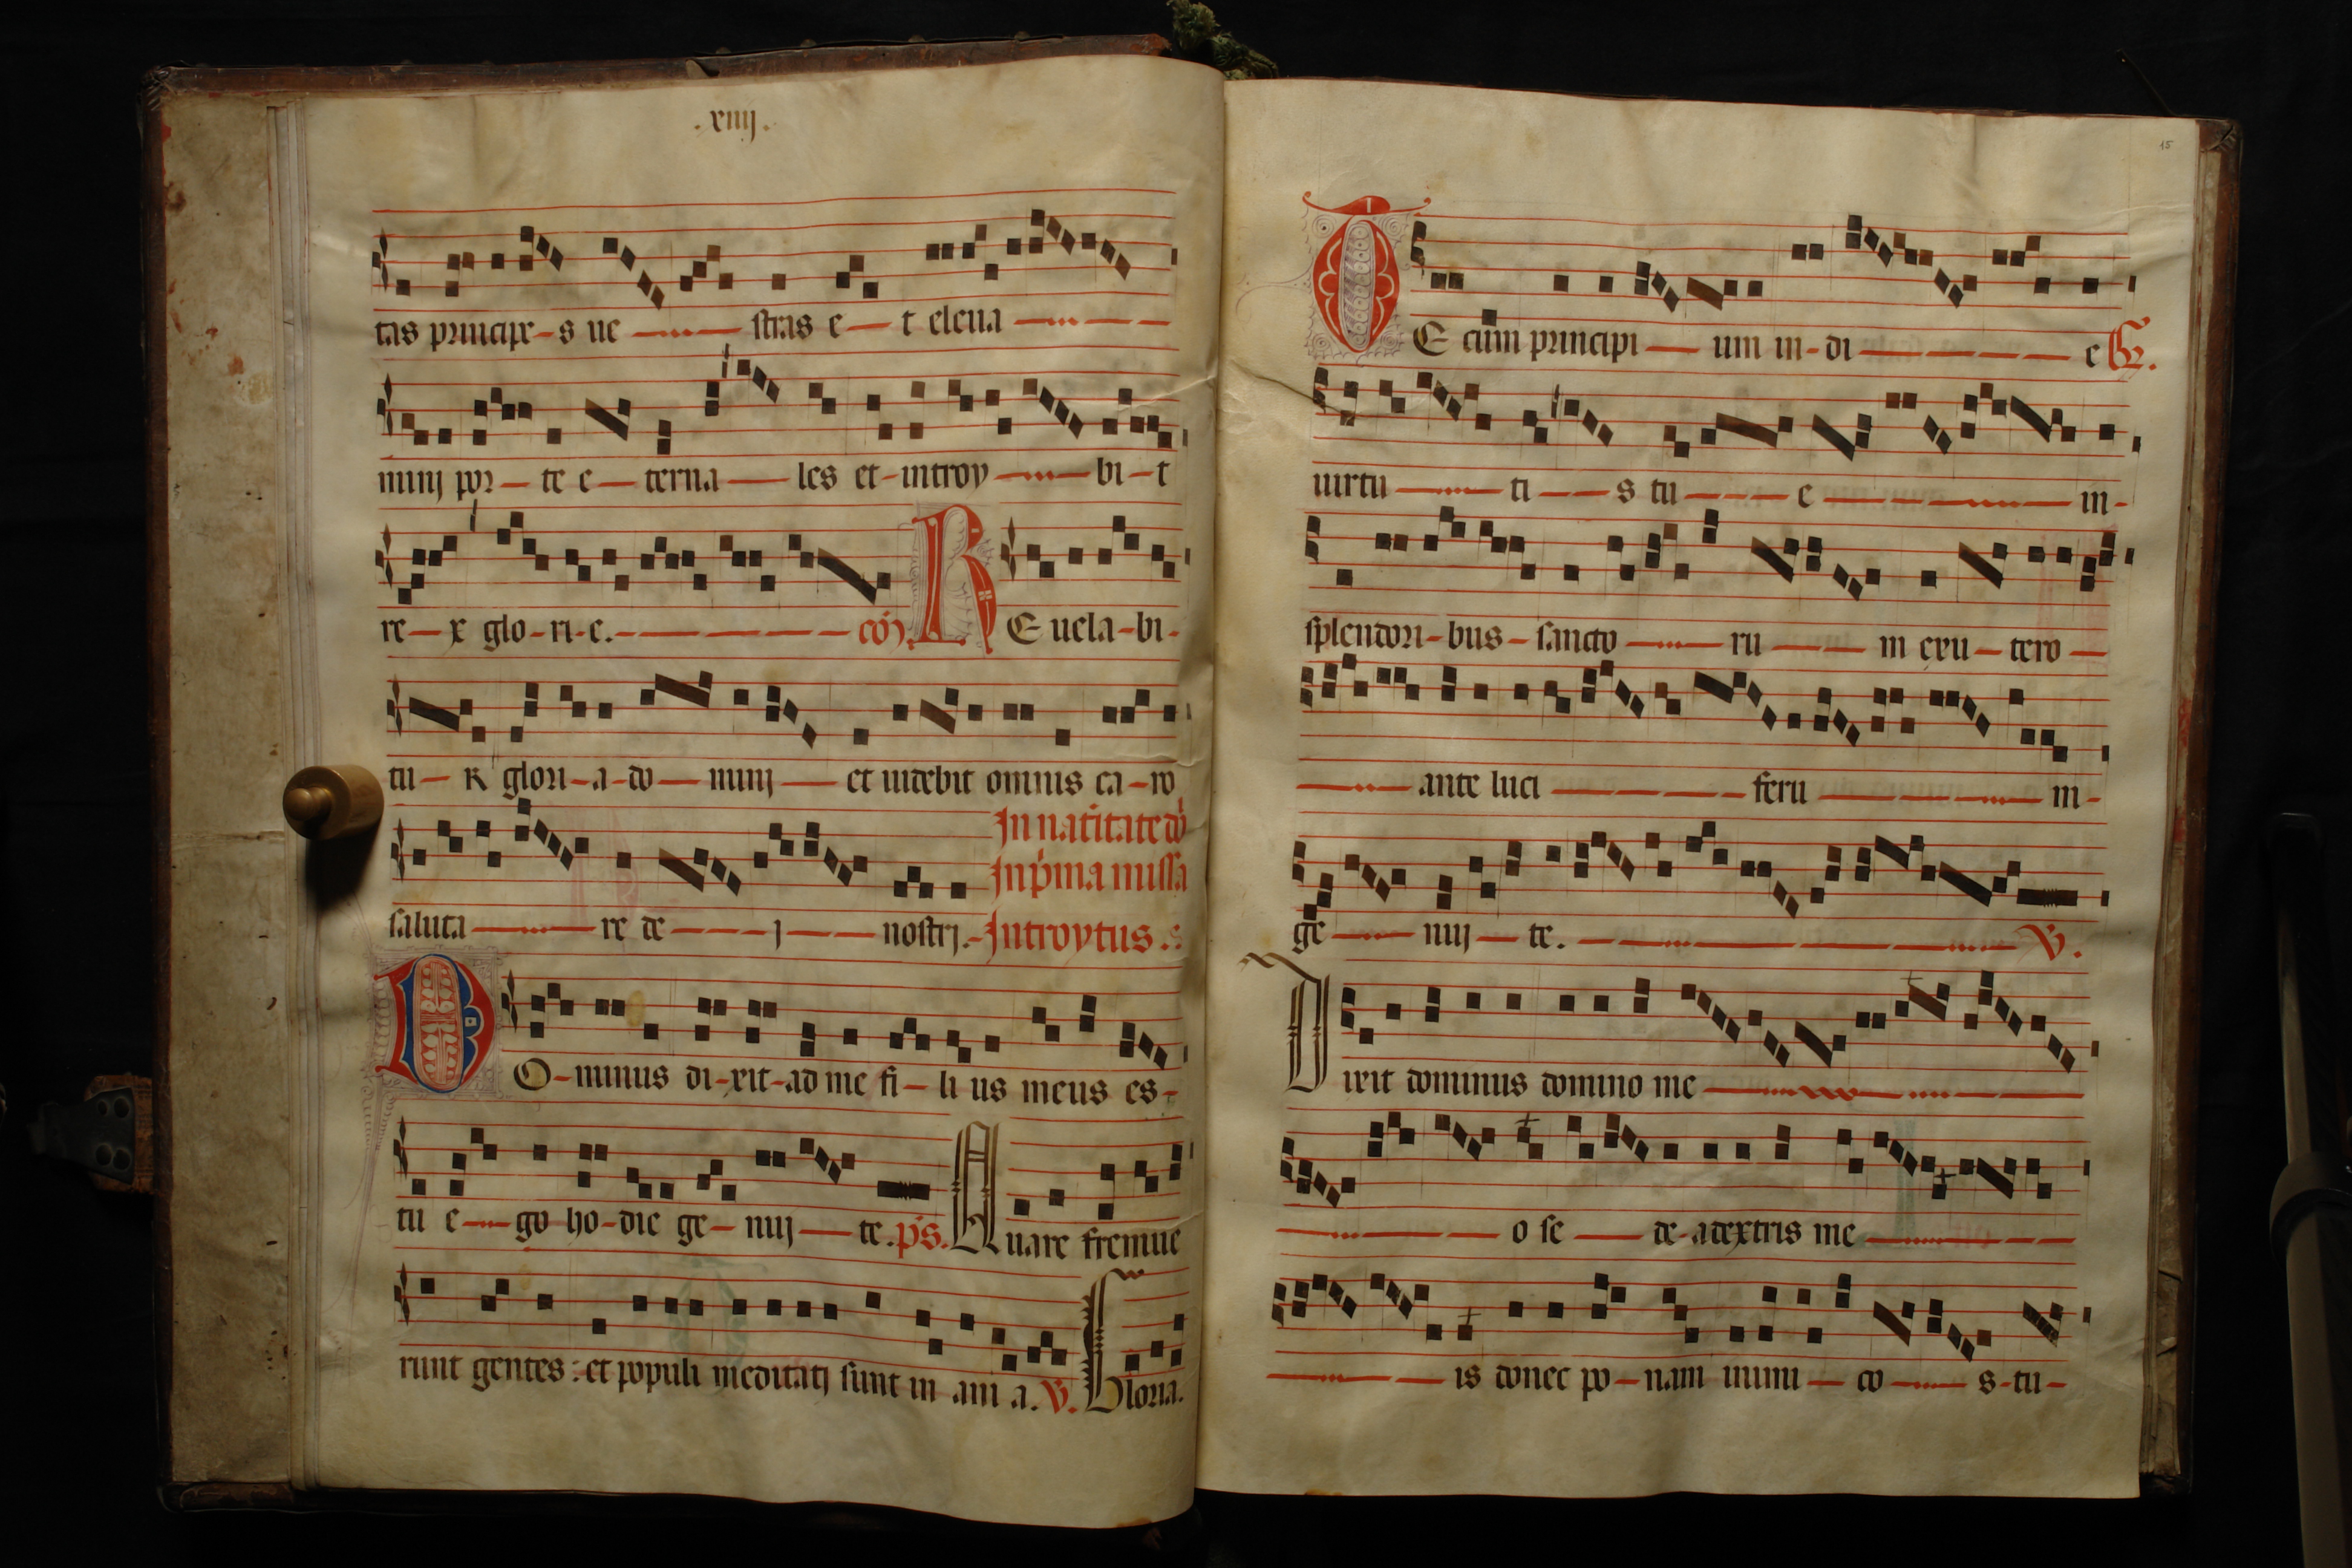 .xiiij.
tas principe-s ue — stras e — t eleua —
minj por — te e — terna — les et-introy — bi-t
re — x glo-ri-e. — coī. R E uela-bi-
tu — r glori-a-do — minj — et uidebit omnis ca-ro
In natitate dō
In p̄ma missa
saluta — re de — j — nostrj.-Introytus.
D O-minus di-xit-ad me fi-li us meus es-
tu e — go ho-die ge-nuj — te. ps. Quare fremue
runt gentes: et populi meditatj sunt in ani a. V. Gloria.
15
T E cum principi — um in-di — e Gr.
uirtu — ti — s tu — e — in-
splendori-bus-sancto — ru — m exu-tero —
— ante luci — feru — m-
ge — nuj — te. — V.
Dixit dominus domino me —
— o se — de-adextris me —
— is donec po-nam inimi — co — s-tu-